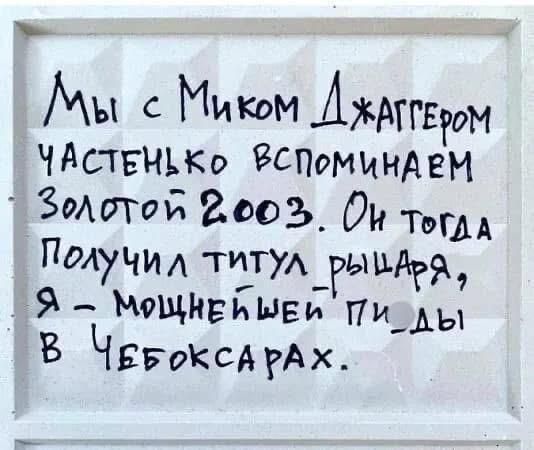 Мы с Миком Джаггером
частенько вспоминаем
золотой 2003. Он тогда
получил титул рыцаря,
я – мощнейшей пи_ды
в Чебоксарах.